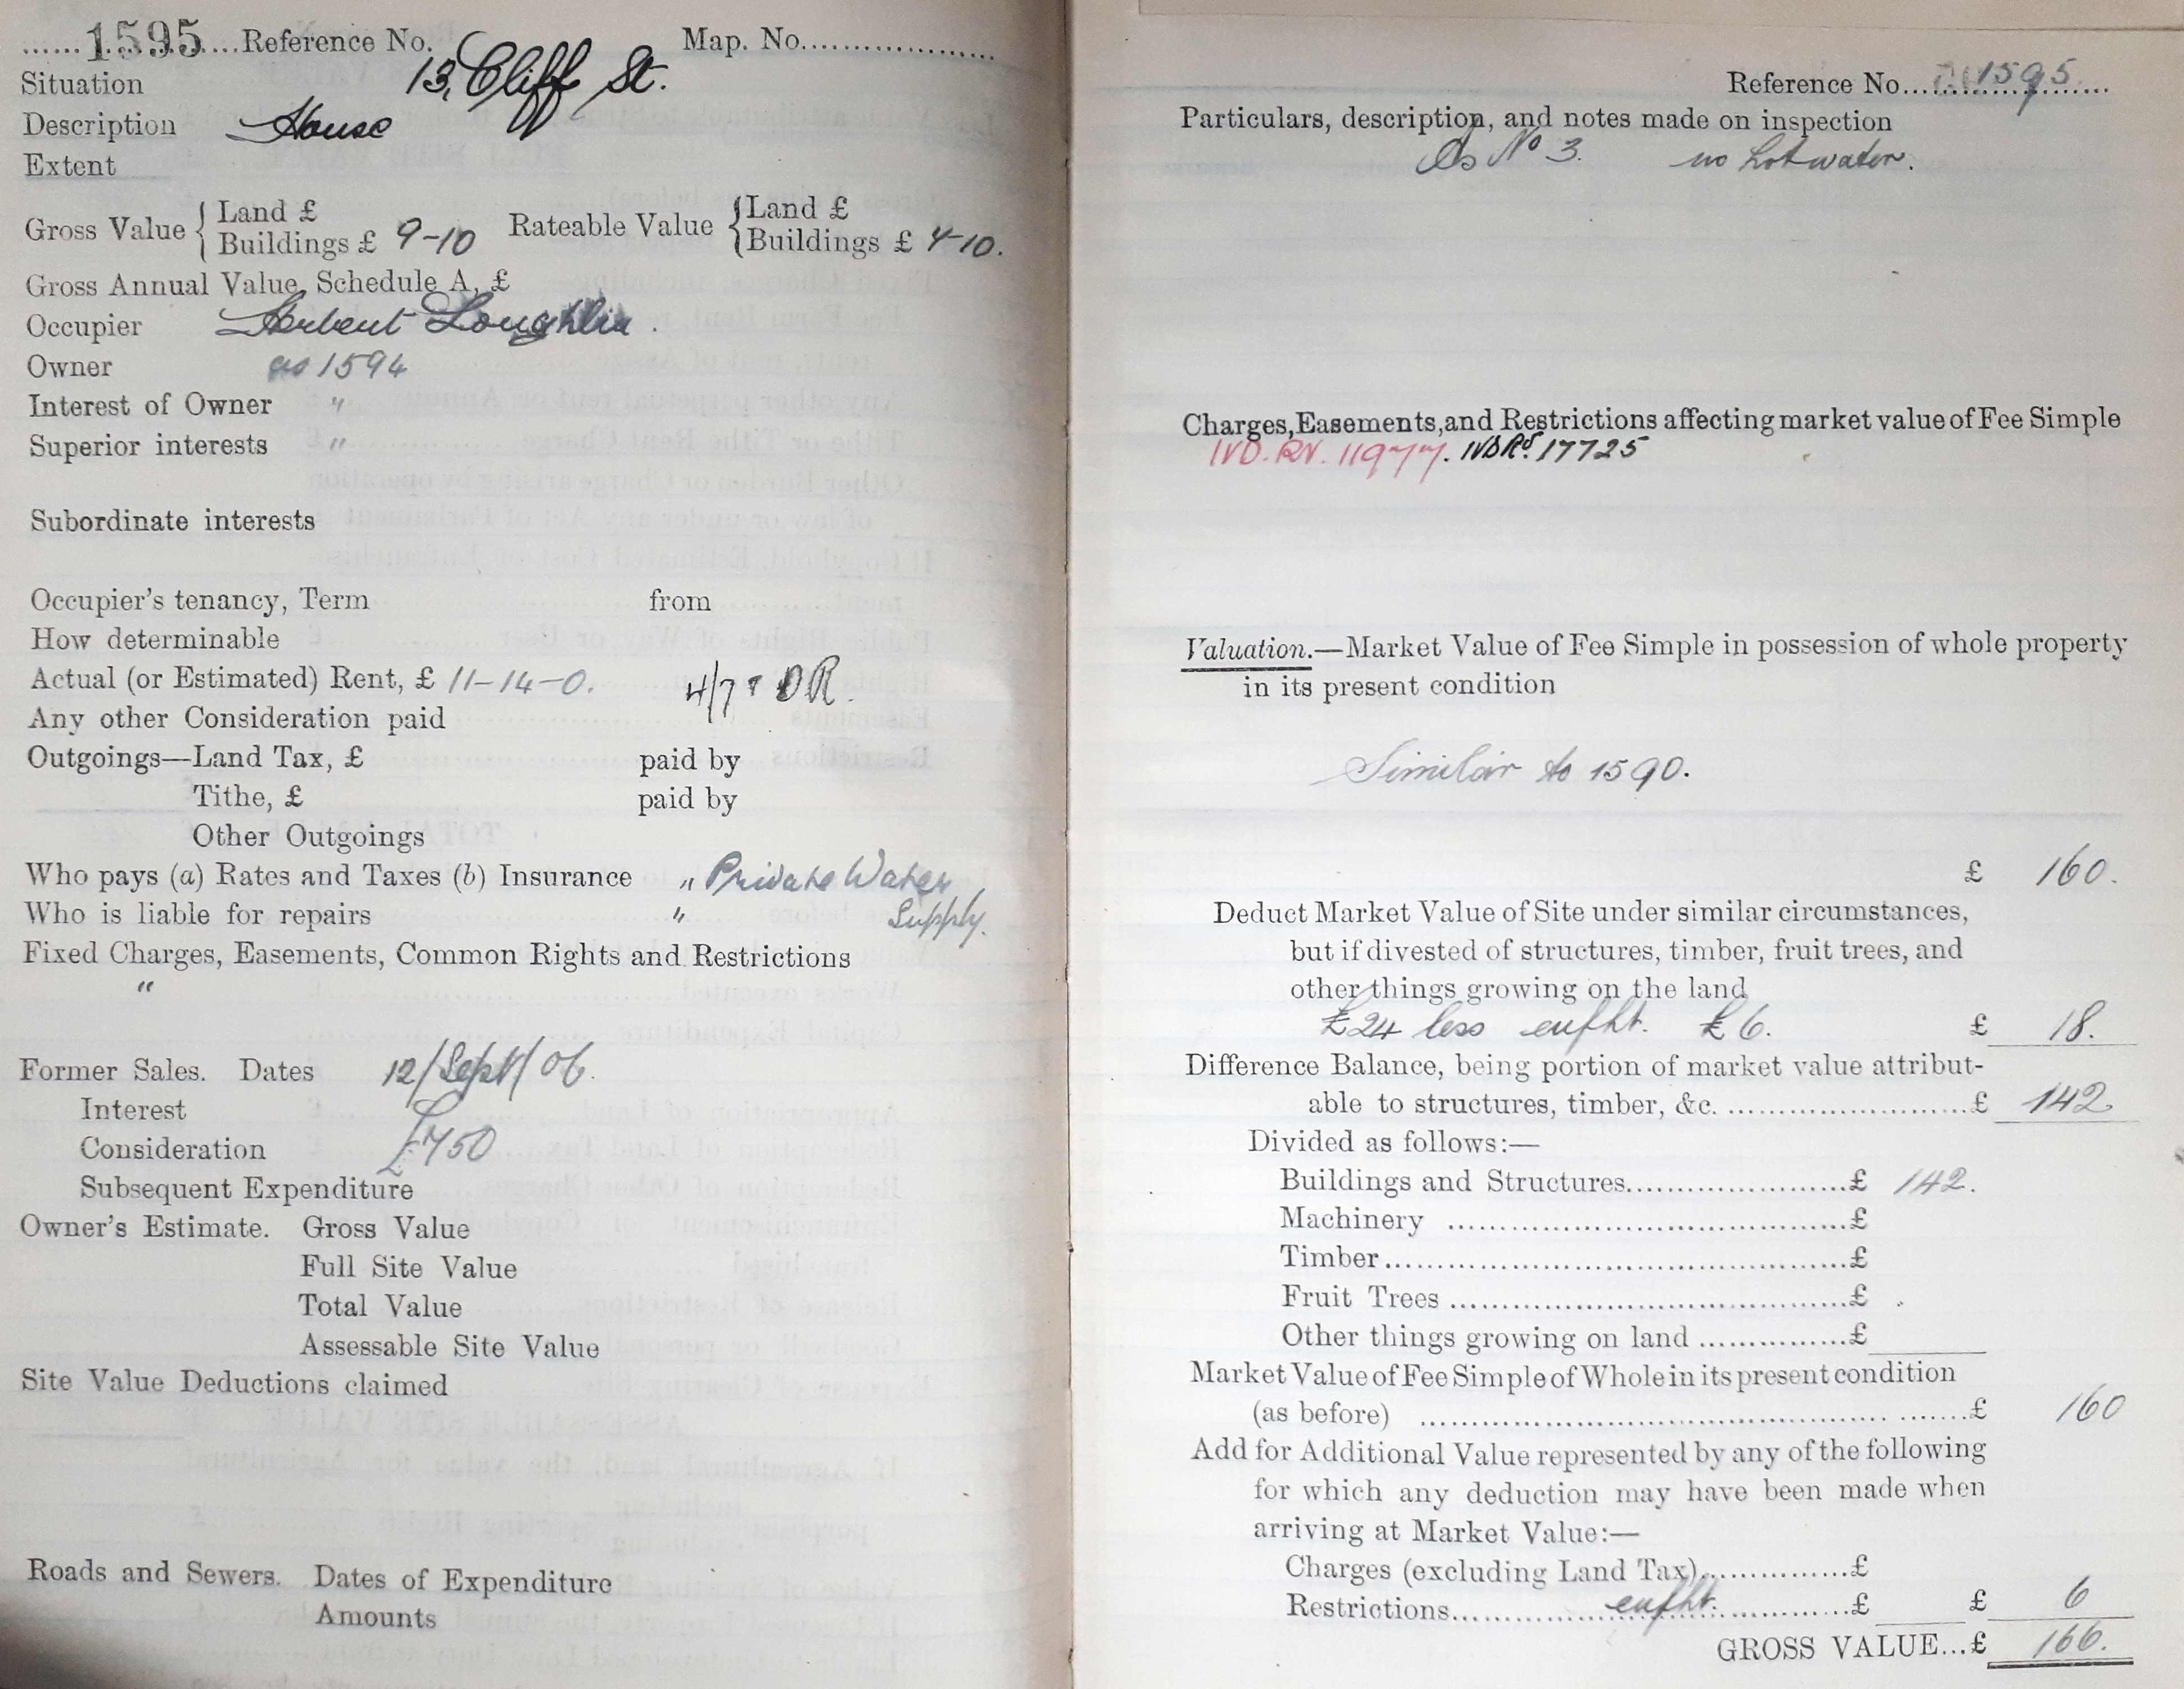 1595 Reference No. Map. No.
Situation 13, Cliff St.
Description House
Extent
Gross Value { Land £ Rateable Value { Land £
Buildings £ 9-10 Buildings £ 4-10.
Gross Annual Value, Schedule A, £
Occupier Herbert Loughlin.
Owner as 1594
Interest of Owner "
Superior interests "
Subordinate interests
Occupier's tenancy, Term from
How determinable
Actual (or Estimated) Rent, £ 11-14-0. 4/7 DR.
Any other Consideration paid
Outgoings—Land Tax, £ paid by
Tithe, £ paid by
Other Outgoings
Who pays (a) Rates and Taxes (b) Insurance " Private Water
Who is liable for repairs " Supply.
Fixed Charges, Easements, Common Rights and Restrictions
"
Former Sales. Dates 12/Sept/06.
Interest
Consideration £750
Subsequent Expenditure
Owner's Estimate. Gross Value
Full Site Value
Total Value
Assessable Site Value
Site Value Deductions claimed
Roads and Sewers. Dates of Expenditure
Amounts
Reference No. 1595
Particulars, description, and notes made on inspection
As No 3. no hot water.
Charges, Easements, and Restrictions affecting market value of Fee Simple
IVD. RV. 11977. IVD Rd. 17725
Valuation.—Market Value of Fee Simple in possession of whole property
in its present condition
Similar to 1590.
£ 160.
Deduct Market Value of Site under similar circumstances,
but if divested of structures, timber, fruit trees, and
other things growing on the land
£24 less enfht. £6. £ 18.
Difference Balance, being portion of market value attribut-
able to structures, timber, &c. £ 142
Divided as follows:—
Buildings and Structures £ 142.
Machinery £
Timber £
Fruit Trees £
Other things growing on land £
Market Value of Fee Simple of Whole in its present condition
(as before) £ 160
Add for Additional Value represented by any of the following
for which any deduction may have been made when
arriving at Market Value:—
Charges (excluding Land Tax) £
Restrictions enfht. £ £ 6
GROSS VALUE...£ 166.